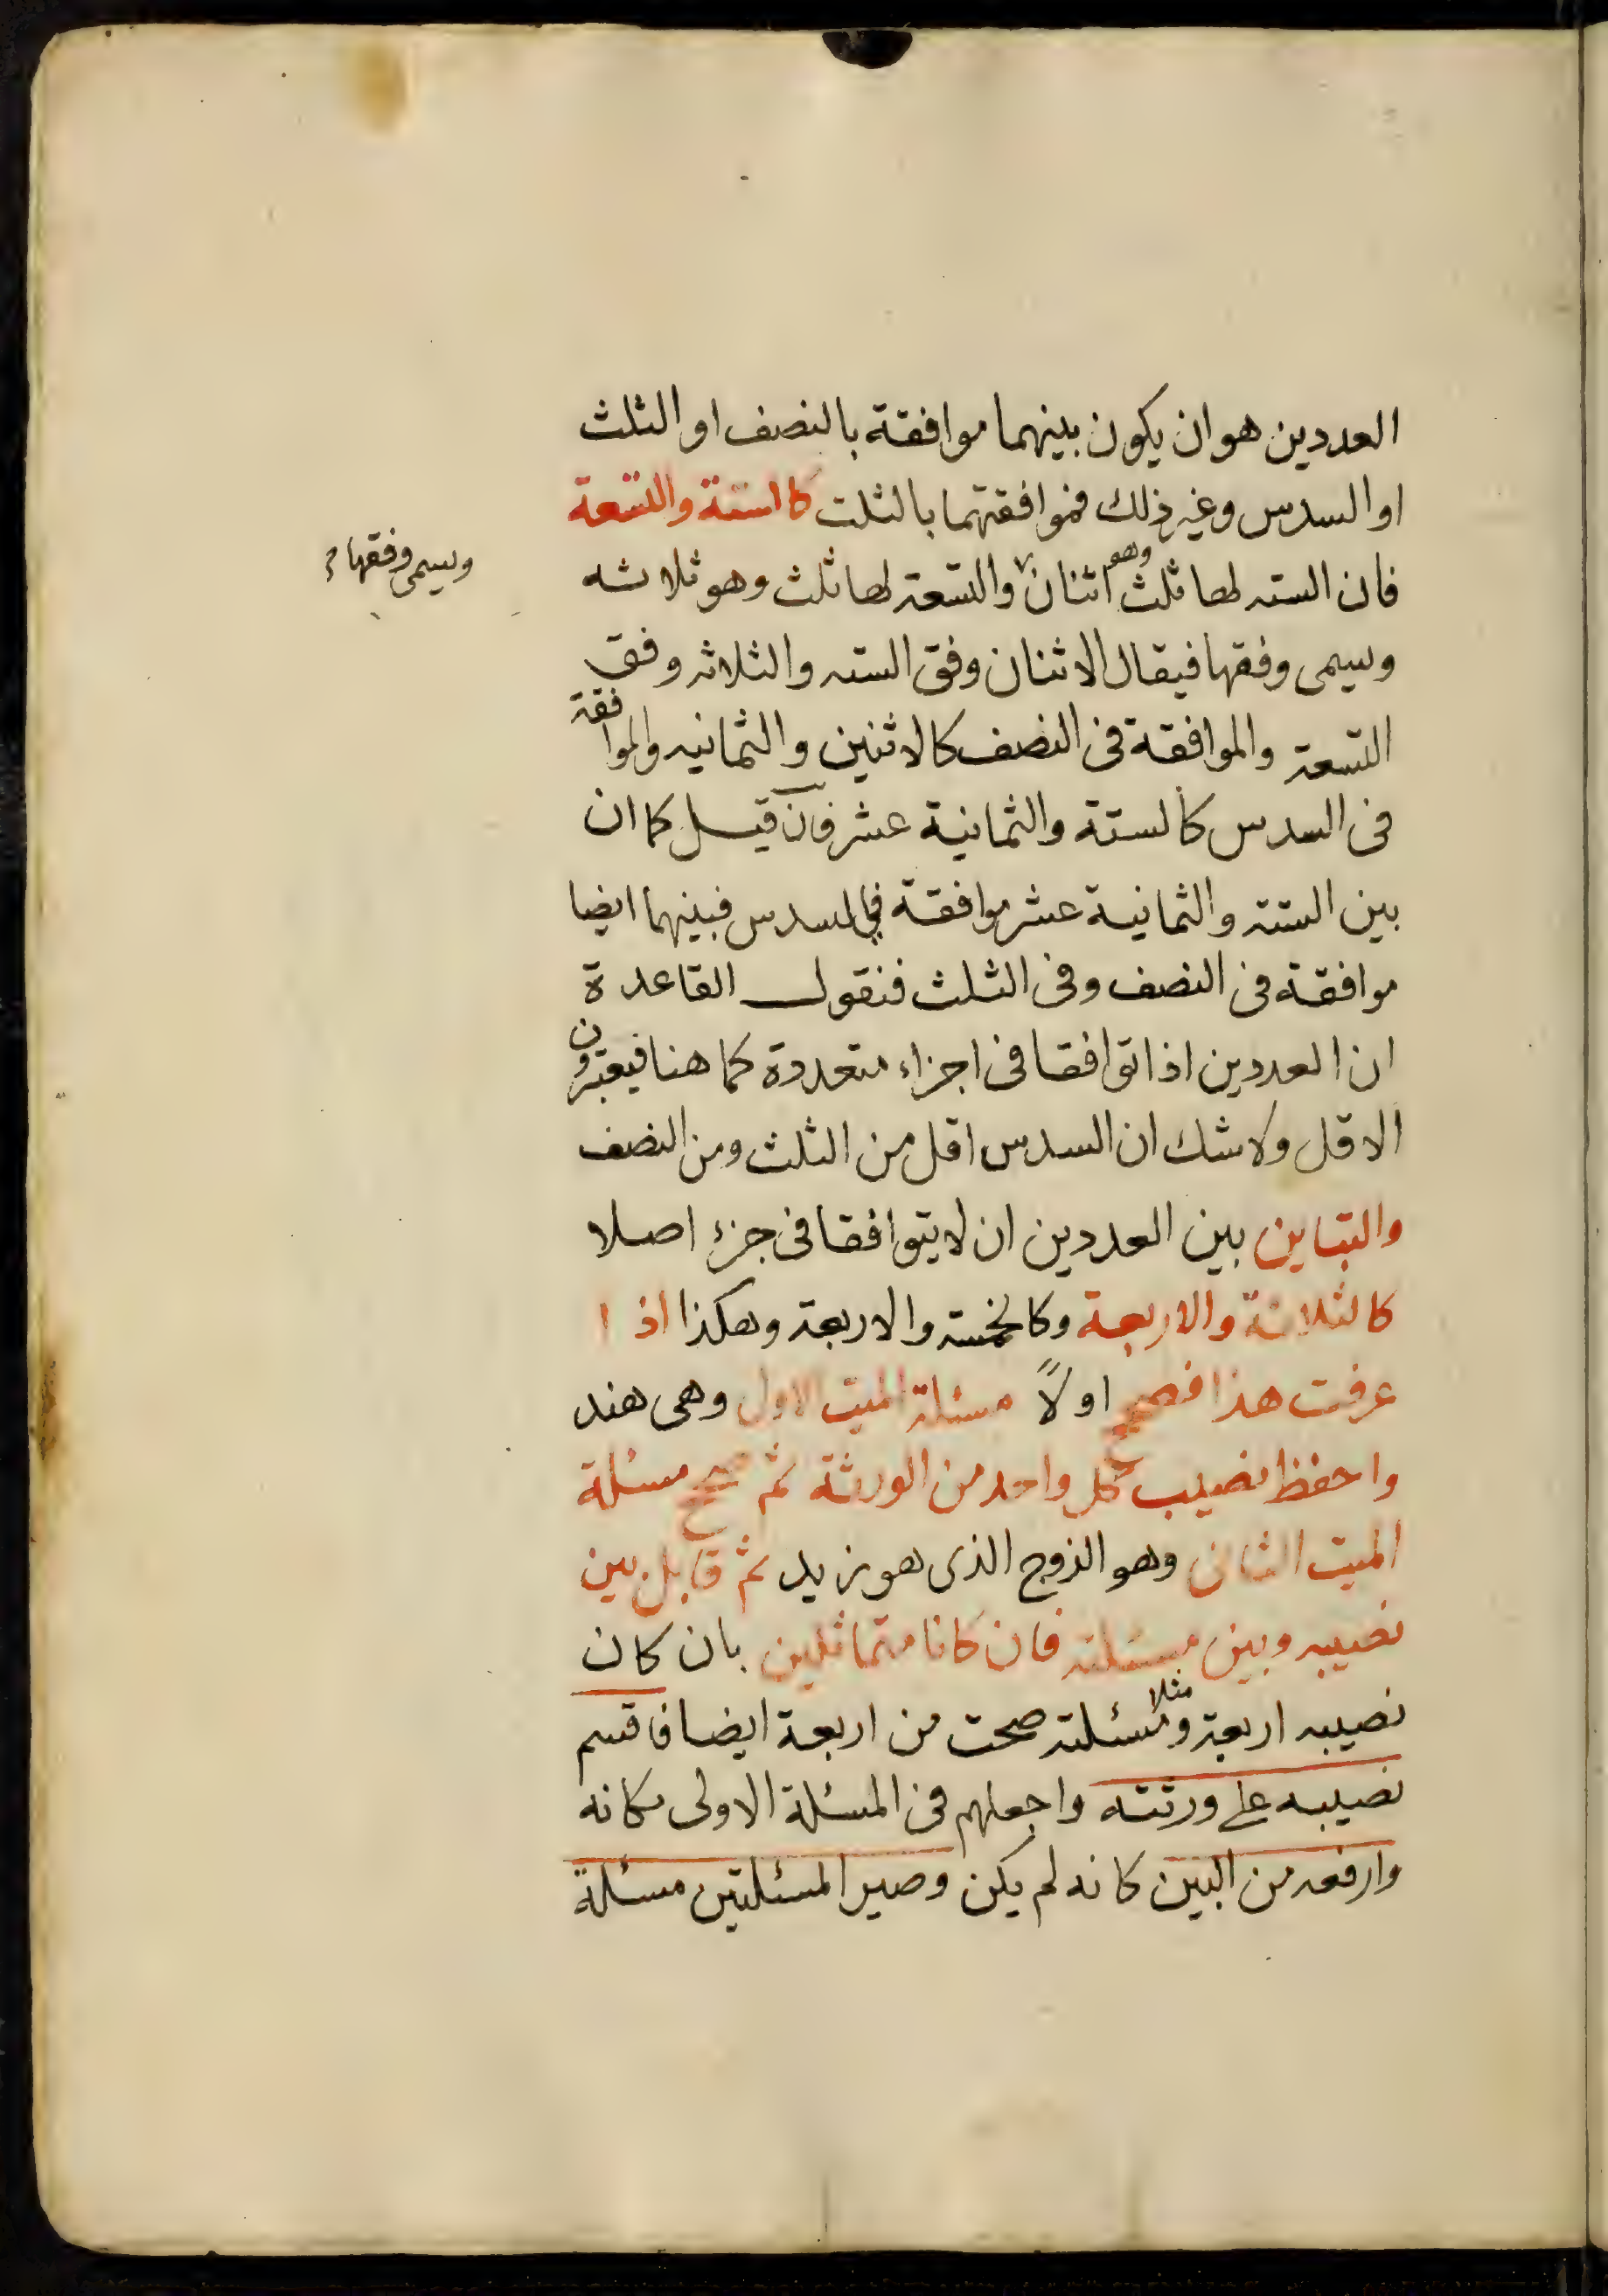 العددين هو ان يكون بينهما موافقة بالنصف او الثلث
او السدس وغير ذلك فموافقتهما بالثلث كالستة والتسعة
فان السته لها ثلث وهو اثنان والتسعة لها ثلث وهو ثلاثه
ويسمى وفقها
ويسمى وفقها فيقال الاثنان وفق السته والثلاثه وفق
التسعة والموافقة فى النصف كالاثنين والثمانيه والموافقة
فى السدس كالستة والثمانية عشر فان قيل كما ان
بين الستة والثمانية عشر موافقة فى السدس فبينهما ايضا
موافقة فى النصف وفى الثلث فنقول القاعدة
ان العددين اذا توافقا فى اجزاء متعددة كما هنا فيعتبرون
الاقل ولا شك ان السدس اقل من الثلث ومن النصف
والتباين بين العددين ان لا يتوافقا فى جزء اصلا
كالثلاثة والاربعة وكالخمسة والاربعة وهكذا اذا
عرفت هذا فصحح اولاً مسئلة الميت الاول وهى هند
واحفظ نصيب كل واحد من الورثة ثم صحح مسئلة
الميت الثانى وهو الزوج الذى هو زيد ثم قابل بين
نصيبه وبين مسئلته فان كانا متماثلين بان كان
نصيبه اربعة مثلا ومسئلته صحت من اربعة ايضا فاقسم
نصيبه على ورثته واجعلهم فى المسئلة الاولى مكانه
وارفعه من البين كانه لم يكن وصير المسئلتين مسئلة